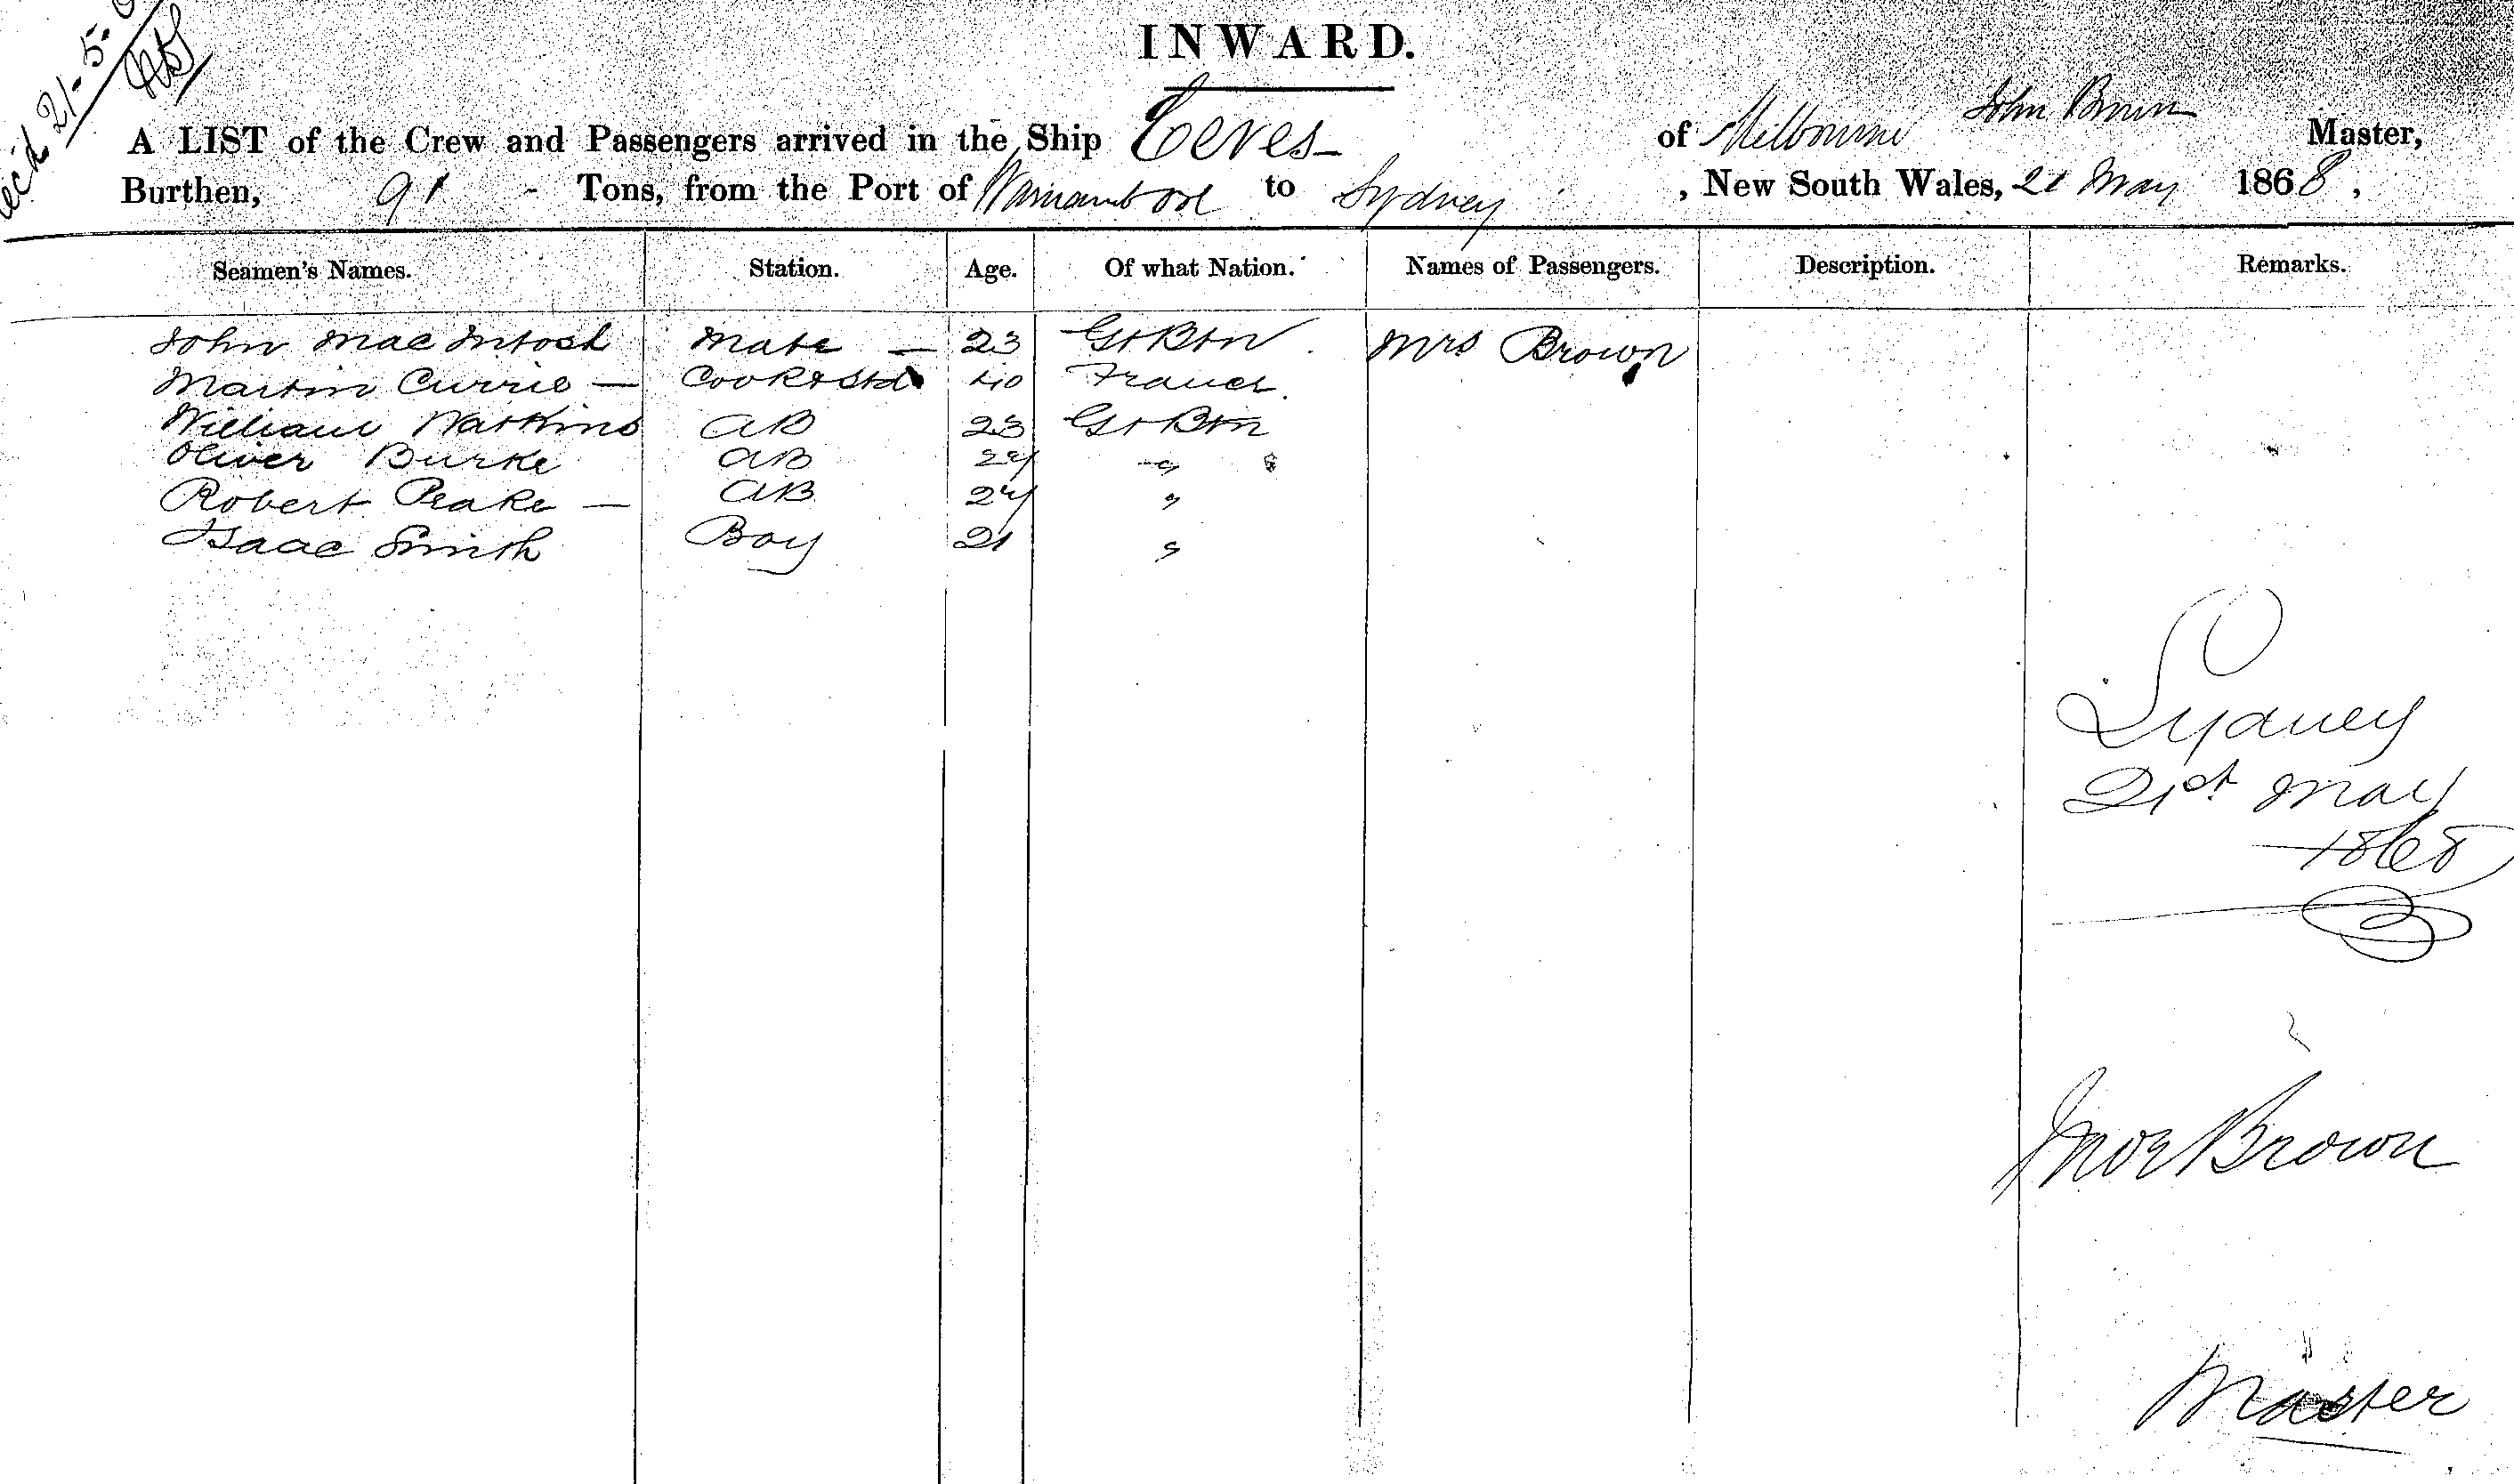 recd. 21-5-
INWARD.
A LIST of the Crew and Passengers arrived in the Ship Ceres of Melbourne John Brown Master,
Burthen, 91 - Tons, from the Port of Warnambool to Sydney, New South Wales, 21 May 1868,
Seamen's Names. Station. Age. Of what Nation. Names of Passengers. Description. Remarks.
John Mac Intosh Mate — 23 Gt Btn Mrs Brown
Martin Currie — Cook & Std 40 France.
William Watkins AB 23 Gt Btn
Oliver Burke AB "
Robert Peake — AB 24 "
Isaac Smith Boy 21 "
Sydney
21st May
1868
Brown
Master